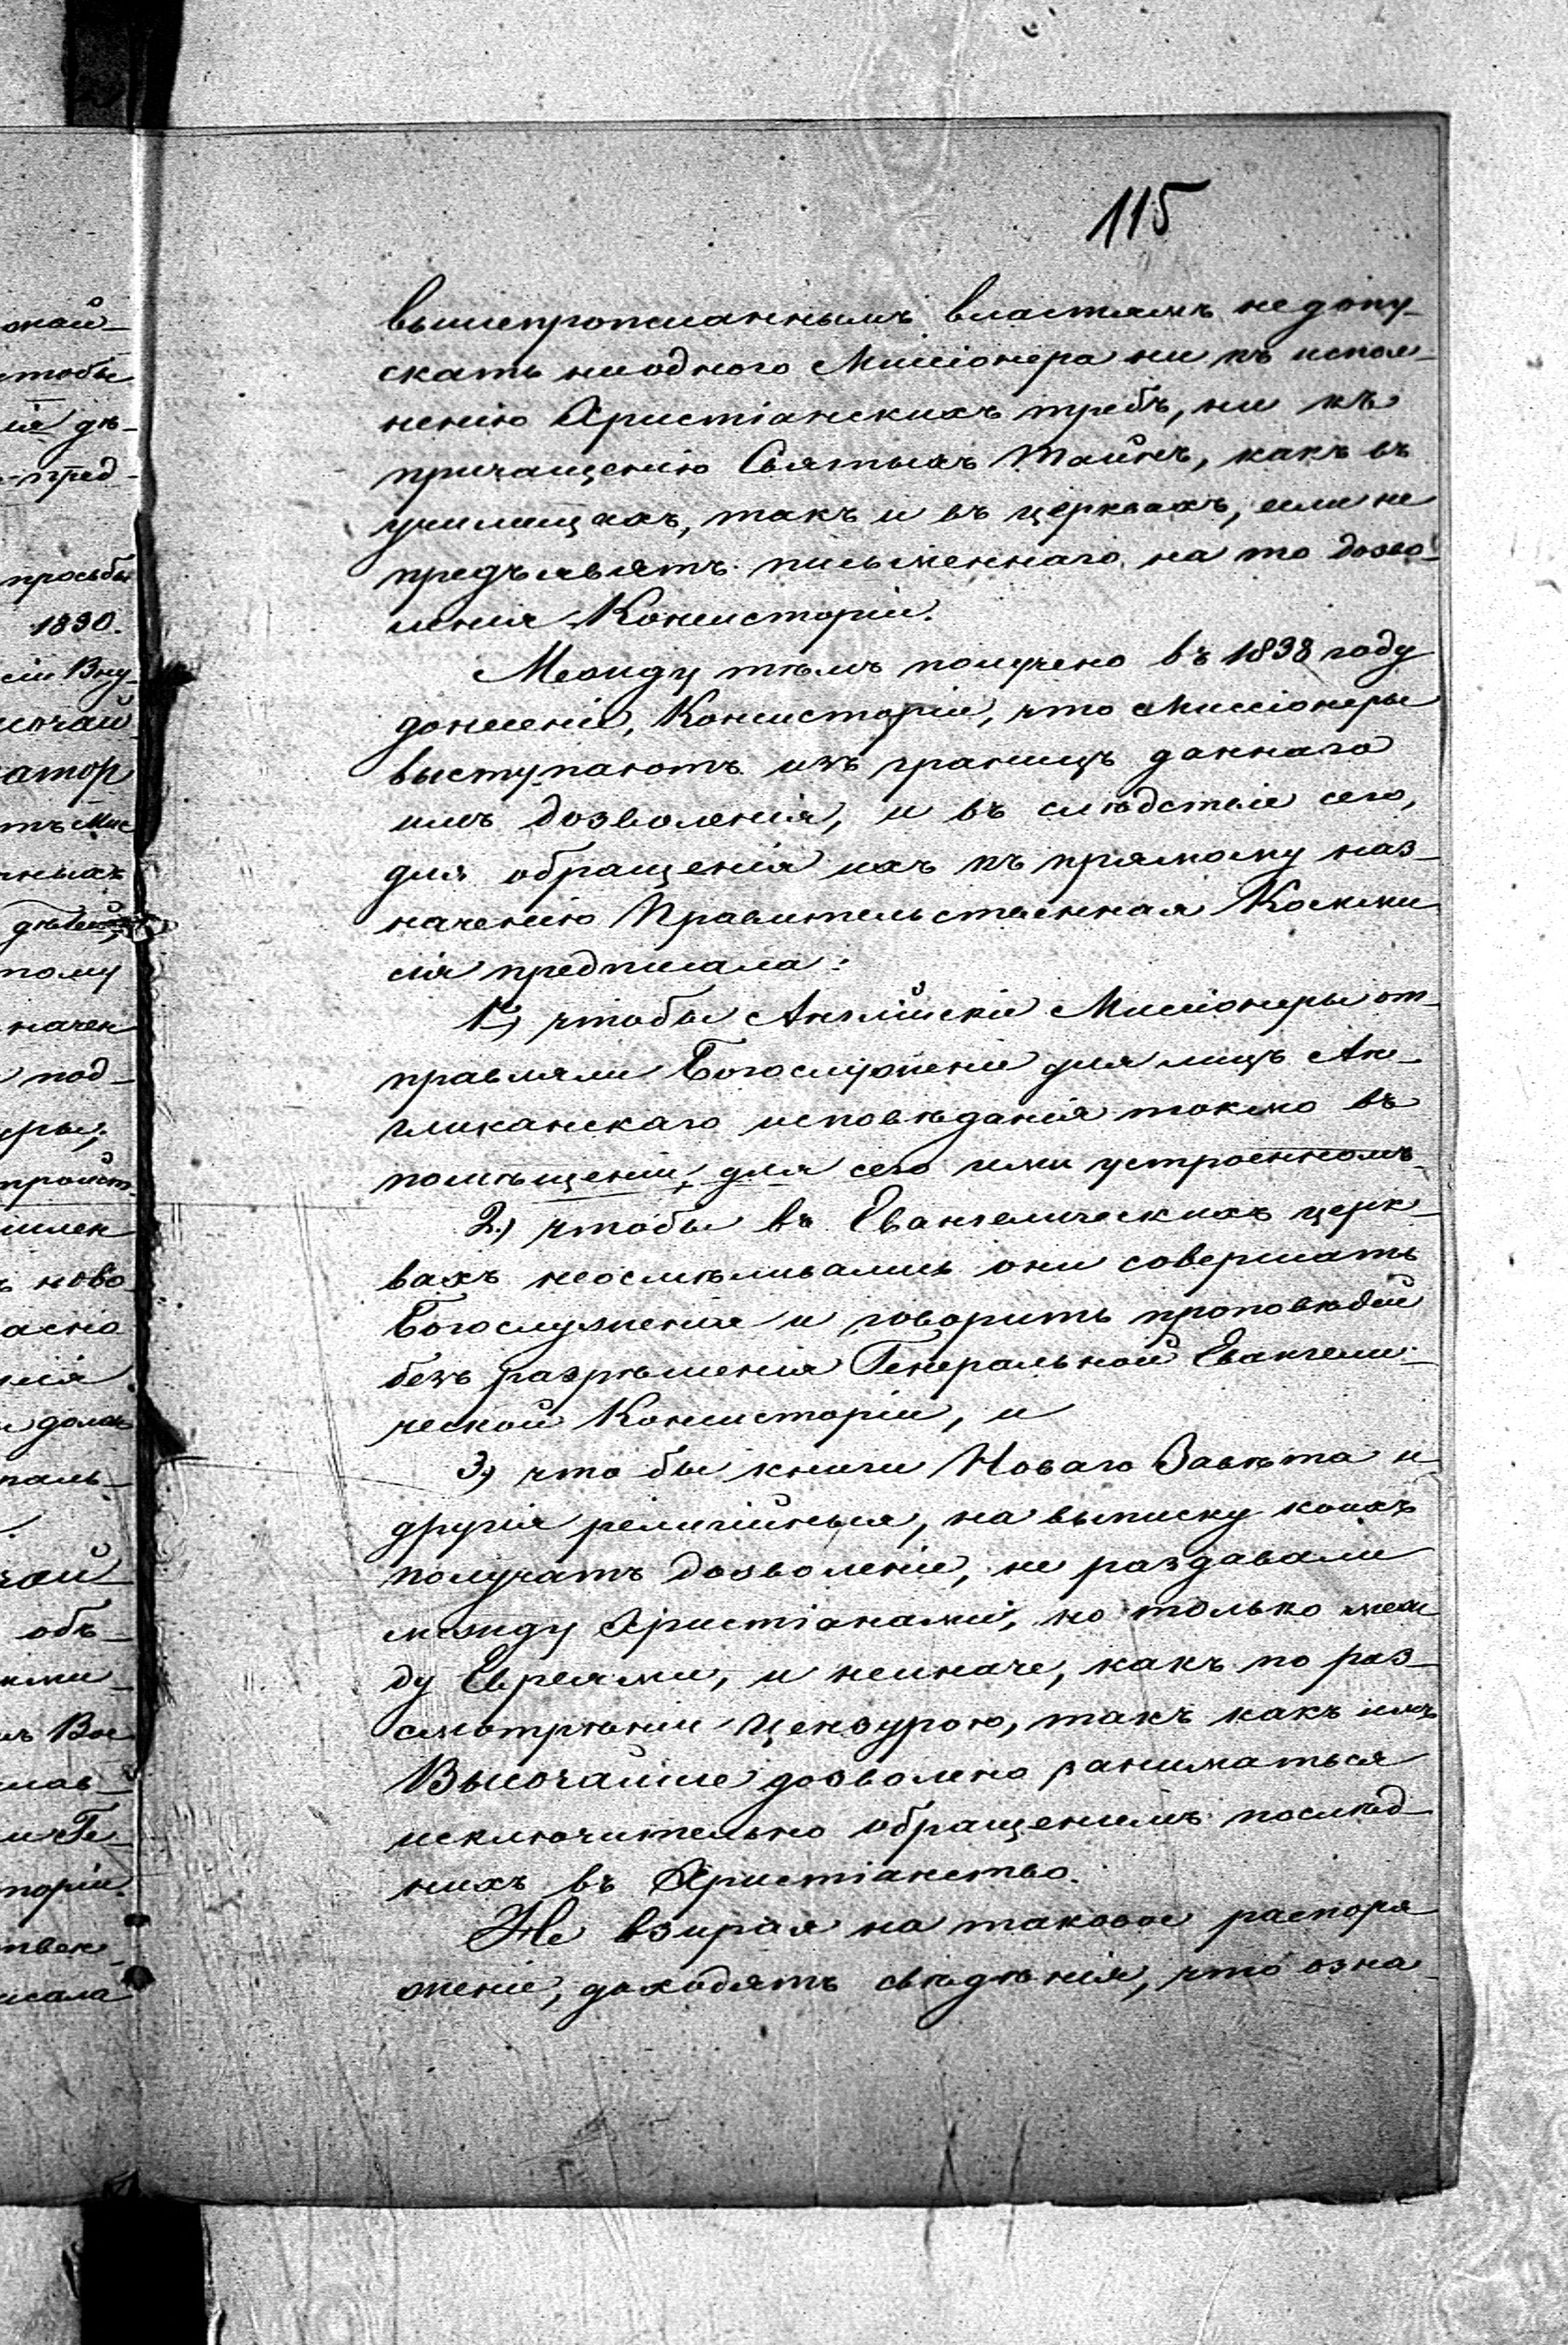 115
вышепрописаннымъ властямъ не допу-
скать ниодного Миссіонера ни къ испол-
нению Христіанскихъ требъ, ни къ
причащенію Святыхъ Таинъ, какъ въ
училищахъ, такъ и въ церквахъ, если не
предъявятъ письменнаго на то дозво-
ленія Консисторіи.
Между тѣмъ получено въ 1838 году
донесеніе, Консисторіи, что Миссіонеры
выступаютъ изъ границъ даннаго
имъ дозволенія, и въ слѣдствіе сего,
для обращенія ихъ къ прямому наз-
наченію Правительственная Комми
сія предписала:
1.) чтобы Англійскіе Миссіонеры от-
правляли Богослуженіе для лицъ Ан-
гликанскаго исповѣданія токмо въ
помѣщеніи, для сего ими устроенномъ
2.) чтобы въ Евангелическихъ церк-
вахъ неосмѣливались они совершать
Богослуженія и говорить проповѣдей
безъ разрѣшенія Генеральной Евангели-
ческой Консисторіи, и
3.) что бы книги Новаго Завѣта и
другія религійныя, на выписку коихъ
получатъ дозволеніе, не раздавали
между Христіанами, но только меж
ду Евреями, и неиначе, какъ по раз-
смотрѣніи Цензурою, такъ какъ имъ
Высочайше дозволено заниматься
исключительно обращеніемъ послѣд-
нихъ въ Христіанство.
Не взирая на таковое распоря
женіе, доходятъ свѣдѣнія, что озна-